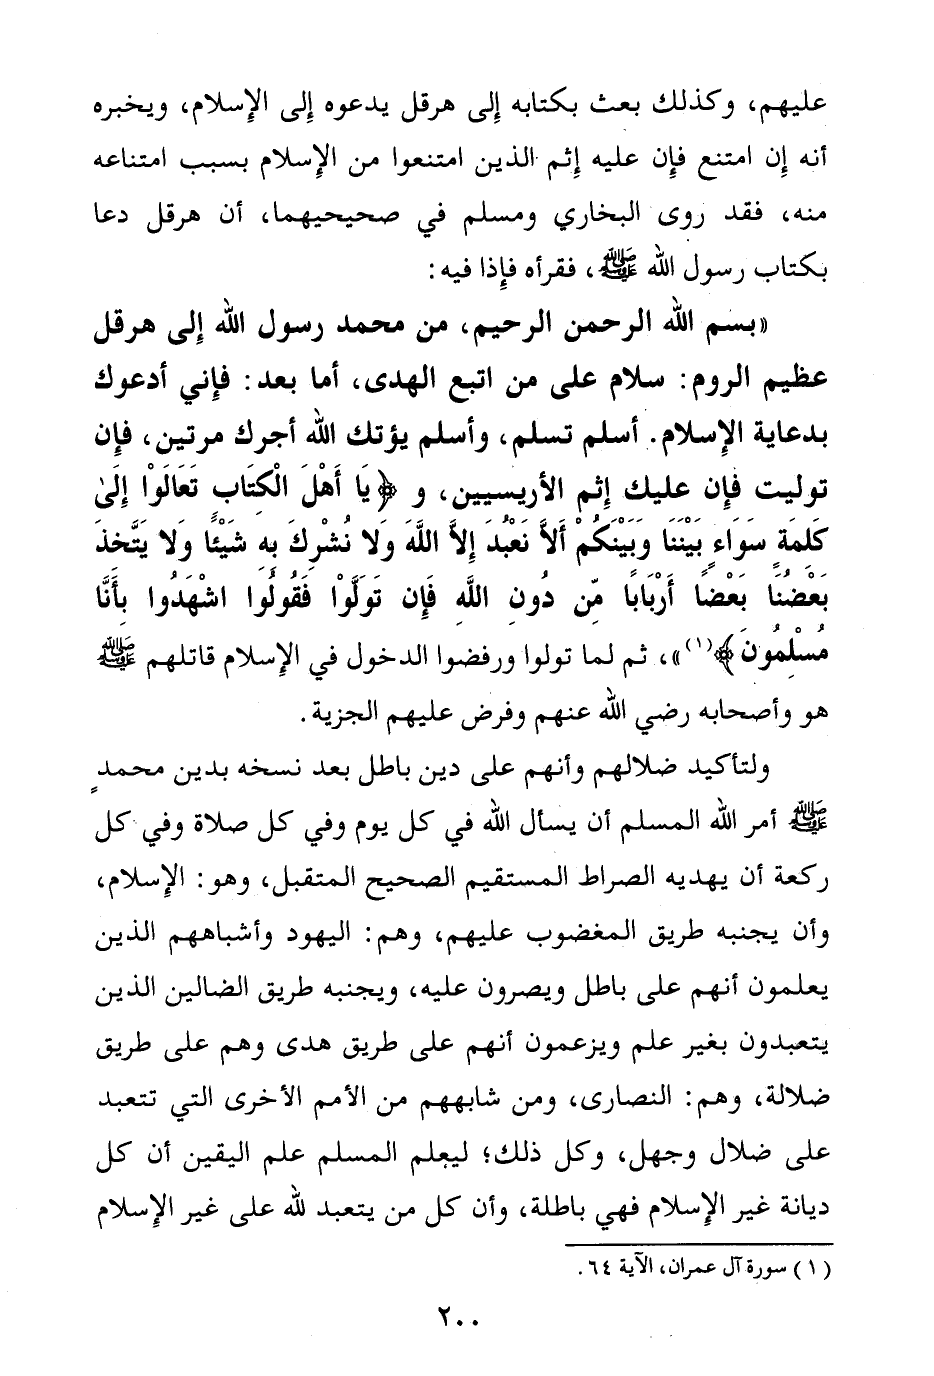 عليهم، وكذلك بعث بكتابه إلى هرقل يدعوه إلى الإسلام، ويخبره
أنه إن امتنع فإن عليه إثم الذين امتنعوا من الإسلام بسبب امتناعه
منه، فقد روى البخاري ومسلم في صحيحيهما، أن هرقل دعا
بكتاب رسول الله ﷺ، فقرأه فإذا فيه:
«بسم الله الرحمن الرحيم، من محمد رسول الله إلى هرقل
عظيم الروم: سلام على من اتبع الهدى، أما بعد: فإني أدعوك
بدعاية الإسلام. أسلم تسلم، وأسلم يؤتك الله أجرك مرتين، فإن
توليت فإن عليك إثم الأريسيين، و ﴿يَا أَهْلَ الْكِتَابِ تَعَالَوْا إِلَىٰ
كَلِمَةٍ سَوَاءٍ بَيْنَنَا وَبَيْنَكُمْ أَلاَّ نَعْبُدَ إِلاَّ اللَّهَ وَلا نُشْرِكَ بِهِ شَيْئًا وَلا يَتَّخِذَ
بَعْضُنَا بَعْضًا أَرْبَابًا مِّن دُونِ اللَّهِ فَإِن تَوَلَّوْا فَقُولُوا اشْهَدُوا بِأَنَّا
مُسْلِمُونَ﴾(١)»، ثم لما تولوا ورفضوا الدخول في الإسلام قاتلهم ﷺ
هو وأصحابه رضي الله عنهم وفرض عليهم الجزية.
ولتأكيد ضلالهم وأنهم على دين باطل بعد نسخه بدين محمدٍ
ﷺ أمر الله المسلم أن يسأل الله في كل يوم وفي كل صلاة وفي كل
ركعة أن يهديه الصراط المستقيم الصحيح المتقبل، وهو: الإسلام،
وأن يجنبه طريق المغضوب عليهم، وهم: اليهود وأشباههم الذين
يعلمون أنهم على باطل ويصرون عليه، ويجنبه طريق الضالين الذين
يتعبدون بغير علم ويزعمون أنهم على طريق هدى وهم على طريق
ضلالة، وهم: النصارى، ومن شابههم من الأمم الأخرى التي تتعبد
على ضلال وجهل، وكل ذلك؛ ليعلم المسلم علم اليقين أن كل
ديانة غير الإسلام فهي باطلة، وأن كل من يتعبد لله على غير الإسلام
(١) سورة آل عمران، الآية ٦٤.
٢٠٠